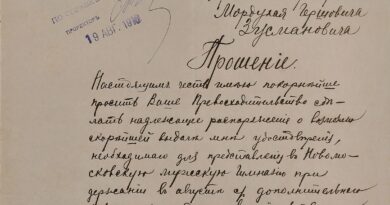 19 АВГ. 1916
Мордухая Гершовича
Зусмановича
Прошеніе.
Настоящимъ честь имѣю покорнѣйше
просить Ваше Превосходительство сдѣ-
лать надлежащее распоряженіе о возможно
скорѣйшей выдачѣ мнѣ удостовѣренія,
необходимаго для представленія въ Новомо-
сковскую мужскую гимназію при
держаніи въ августѣ с/г дополнительнаго